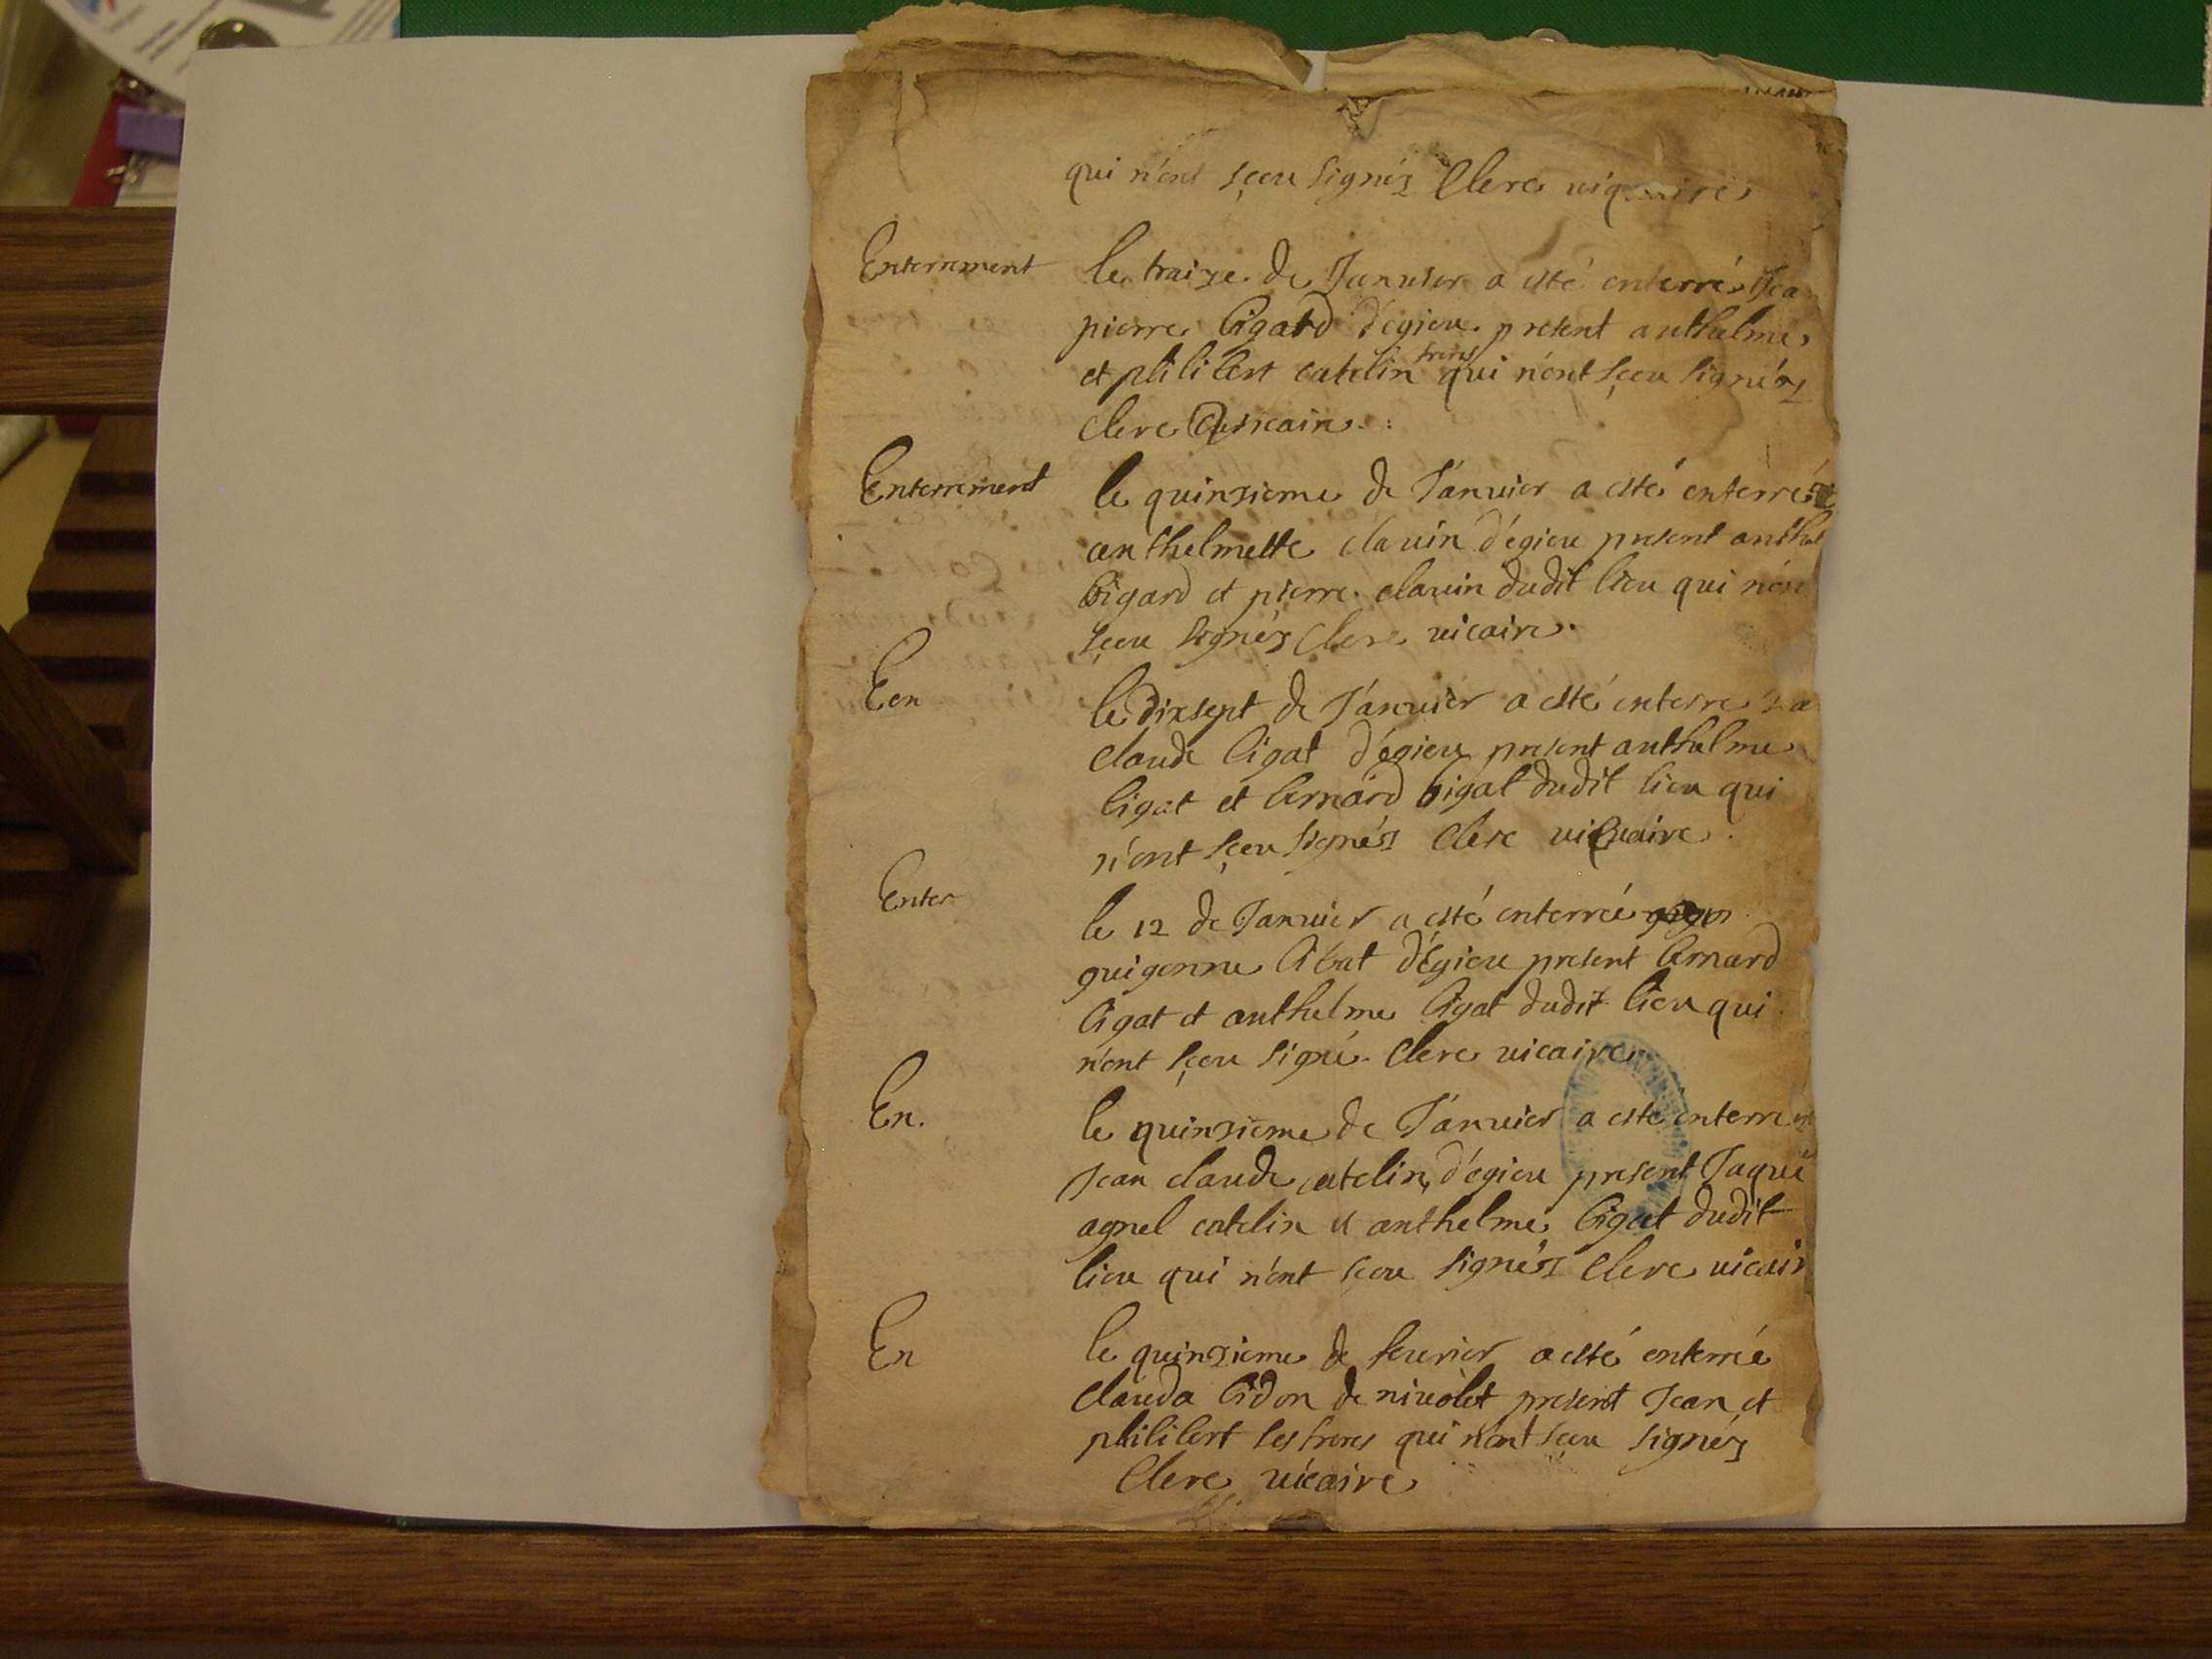 qui n'ont sçeu signéz Clerc viquaire
Enterrement
le traize de Januier a esté enterré Jea
pierre bigard d'égieu present anthelme
et philibert catelin freres qui n'ont sçeu signéz
Clerc vicaire.
Enterrement
le quinzieme de Januier a esté enterré
anthelmette clauin d'égieu present anthel
bigard et pierre clauin dudit lieu qui n'on
sçeu signéz Clerc vicaire.
Een
le dixsept de Januier a esté enterre
claude bigat d'égieu present anthelme
bigat et bernard bigat dudit lieu qui
n'ont sçeu signéz Clerc viquaire.
Enter
le 12 de Januier a esté enterreé
guigonne bibat d'égieu present bernard
bigat et anthelme bigat dudit lieu qui
n'ont sçeu signé. Clerc vicaire
En.
le quinzieme de Januier a esté enterre
Jean claude catelin d'égieu present Jaque
agnel catelin et anthelme bigat dudit
lieu qui n'ont sçeu signéz Clerc vicair
En
le quinzieme de feurier a esté enterreé
clauda bidon de niuolet present Jean et
philibert ses freres qui n'ont sçeu signéz
Clerc vicaire